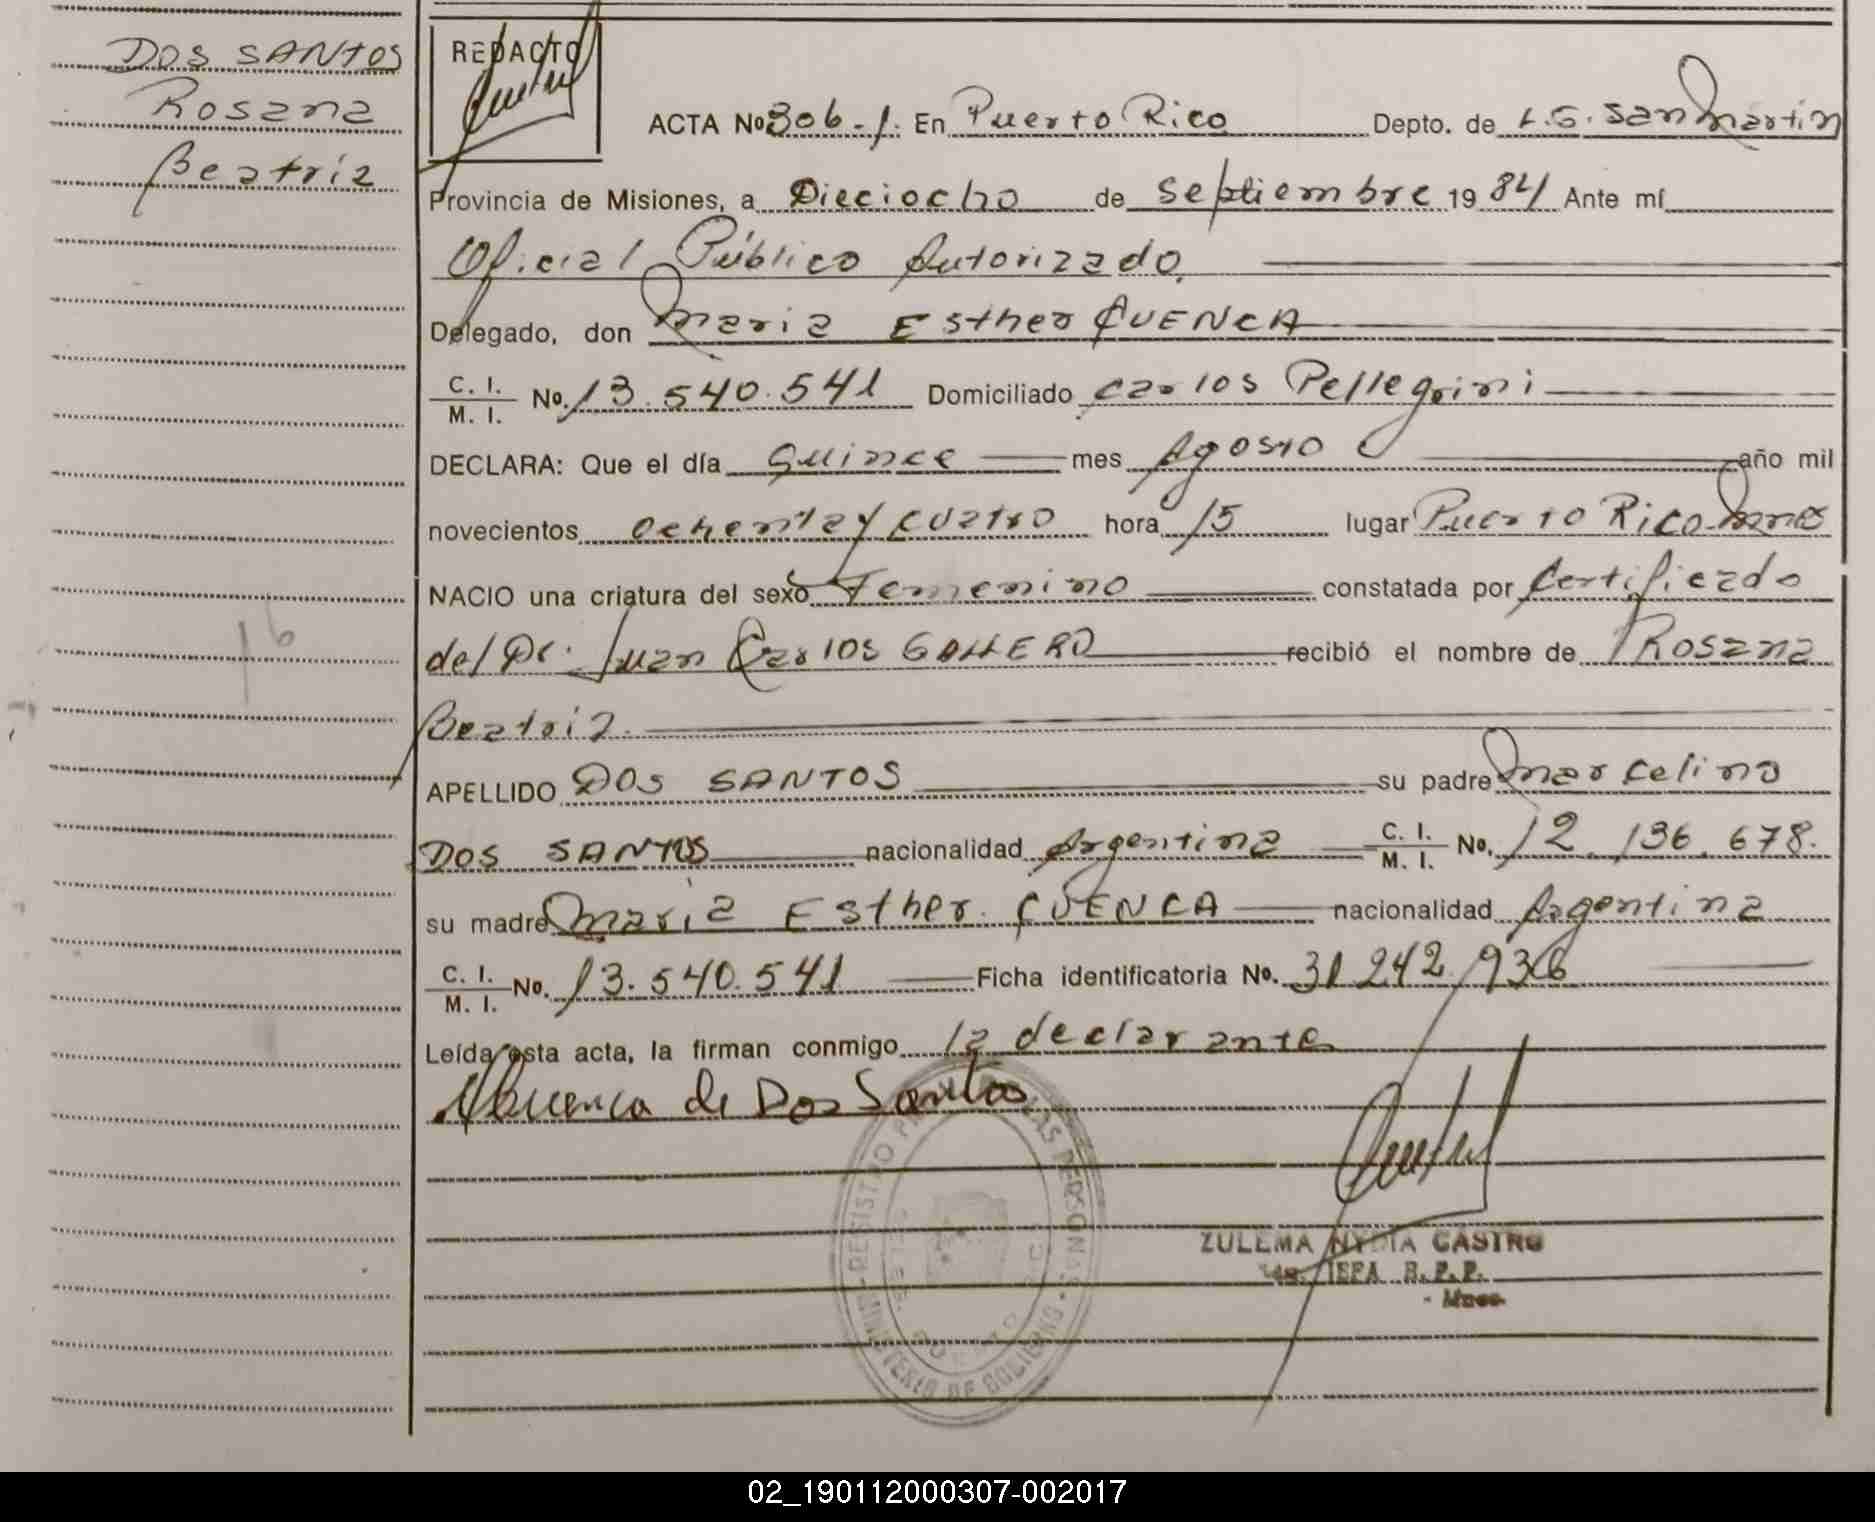 DOS SANTOS
Rosana
Beatriz
REDACTO
ACTA No 306-1. En Puerto Rico Depto. de L.G. San Martin
Provincia de Misiones, a Dieciocho de Septiembre 1984 Ante mí
Oficial Público Autorizado.
Delegado, don Maria Esther CUENCA
C. I. / M. I. No. 13.540.541 Domiciliado Carlos Pellegrini
DECLARA: Que el día quince mes Agosto año mil
novecientos ochenta y cuatro hora 15 lugar Puerto Rico Mnes
NACIO una criatura del sexo Femenino constatada por Certificado
del Dr. Juan Carlos recibió el nombre de Rosana
Beatriz.
APELLIDO DOS SANTOS su padre Marcelino
DOS SANTOS nacionalidad Argentina C. I. / M. I. No. 12.136.678.
su madre Maria Esther CUENCA nacionalidad Argentina
C. I. / M. I. No. 13.540.541 Ficha identificatoria No. 31.242.936
Leída esta acta, la firman conmigo la declarante
de Dos Santos
REGISTRO LAS PERSONAS
MINISTERIO DE GOBIERNO
ZULEMA NYDIA CASTRO
JEFA R.P.P.
16
02_190112000307-002017